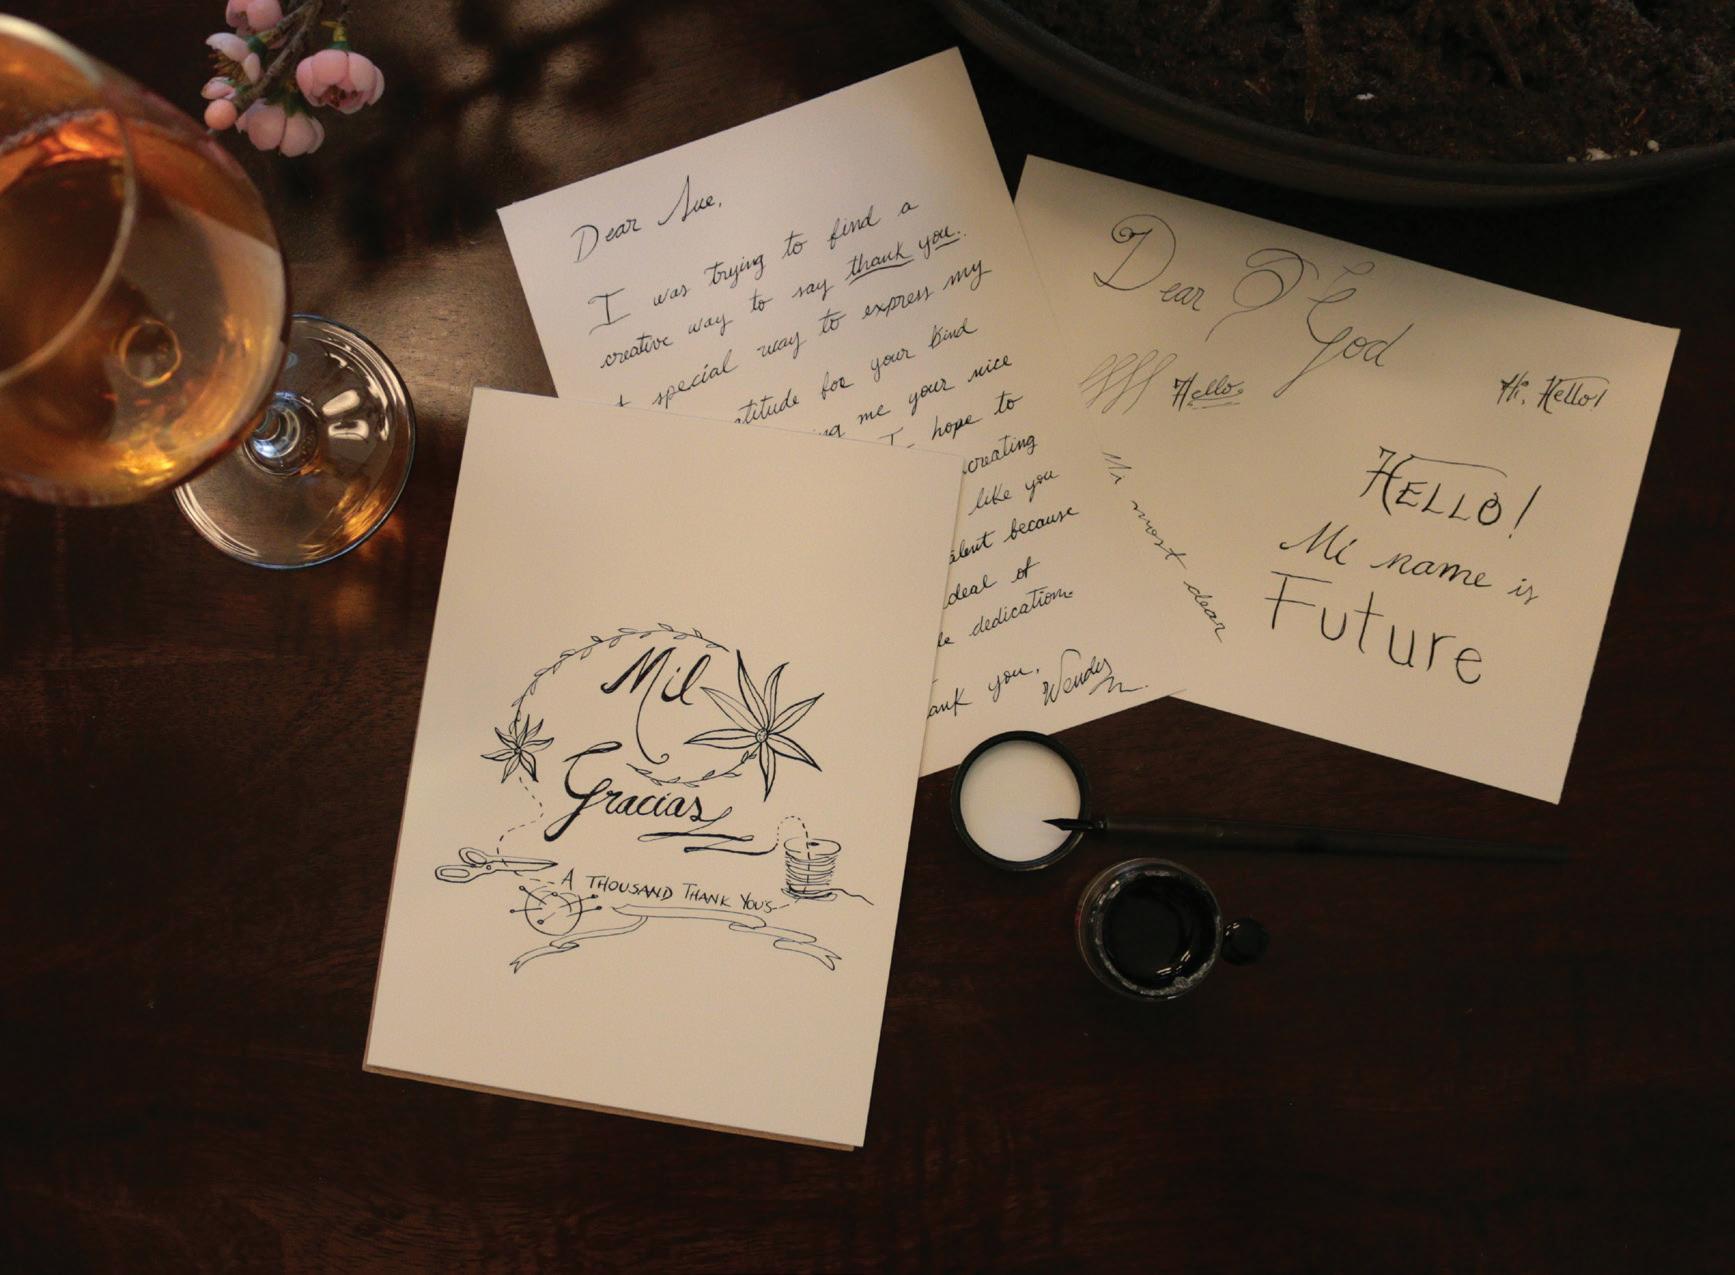 Dear Sue,
I was trying to find a
creative way to say thank you.
special way to express my
atitude for your kind
me your nice
I hope to
creating
like you
alent because
deal of
dedication.
ank you.
Wendy
Dear God
Hello.
Hi, Hello!
HELLO!
Mi name is
Future
Mi most dear
Mil
Gracias
A THOUSAND THANK YOU'S